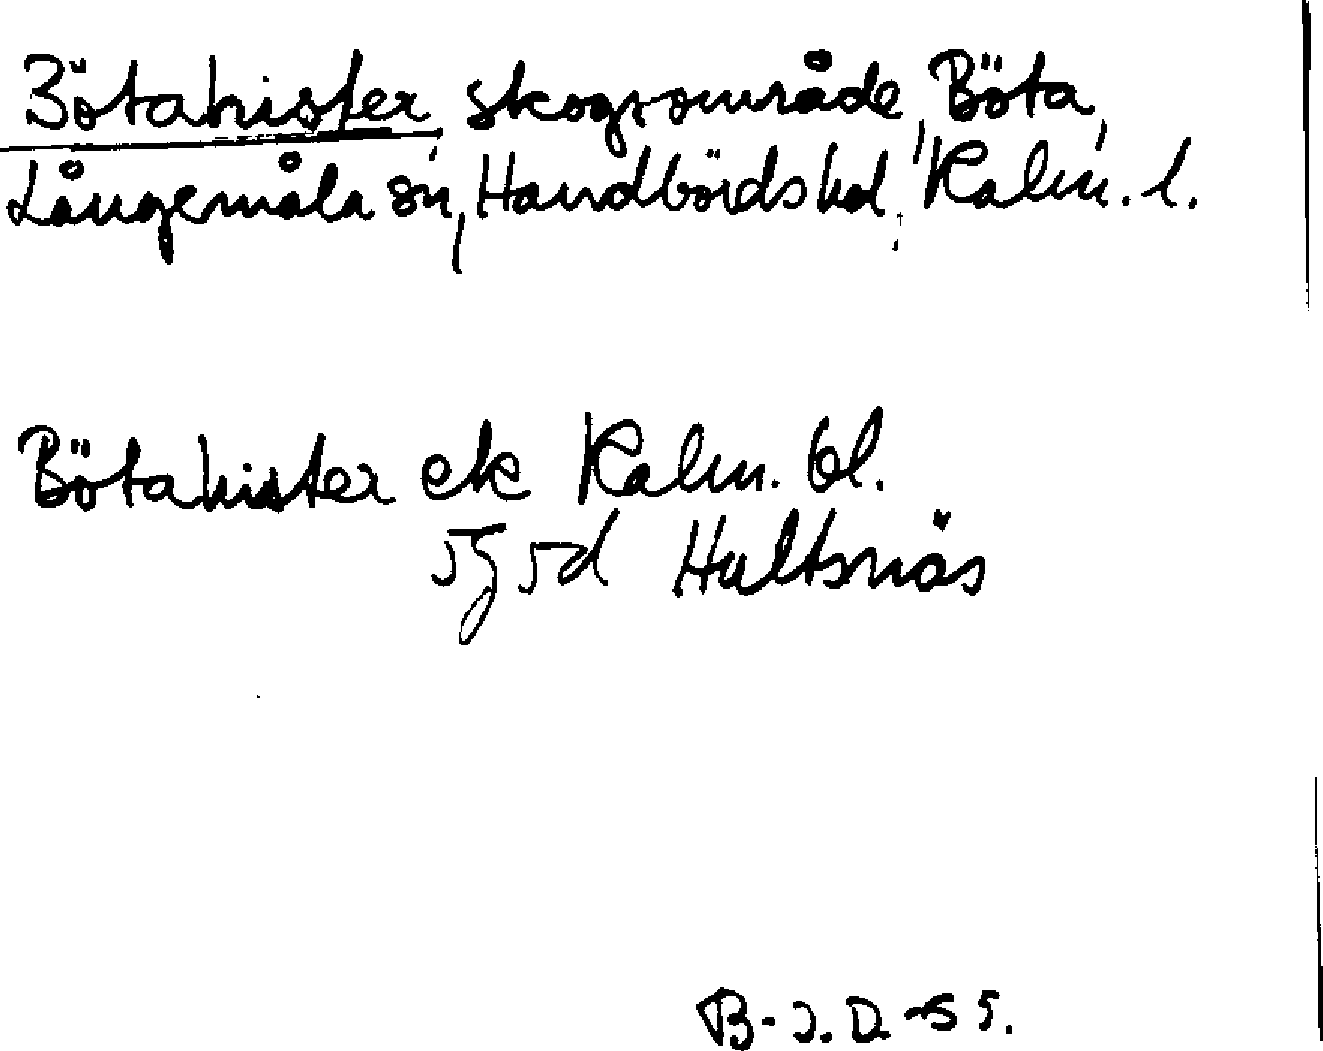 Bötahister, skogsområde, Böta,
Långemåla sn, Handbörds hd, Kalm. l.
Bötahister ek Kalm. bl.
5g 5d Hultsnäs
B-J.D. -55.